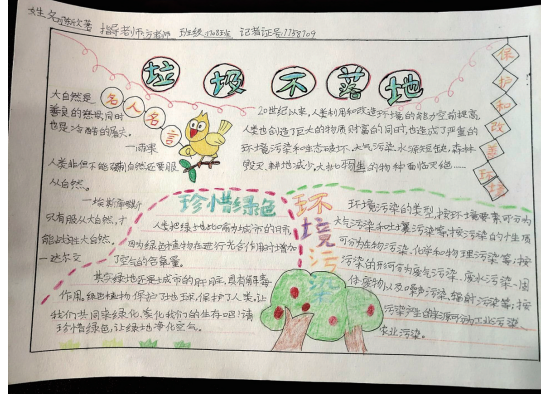 姓名 指导老师 老师 班级 记者证号
垃圾不落地
保护和改善环境
名人名言
大自然是
善良的慈母,同时
也是冷酷的屠夫。
—雨果
人类非但不能 自然还要服
从自然。
只有服从大自然,才
能战胜大自然。
—达尔文
20世纪以来,人类利用和改造环境的能力空前提高,
人类也创造了巨大的物质财富的同时,也造成了严重的
环境污染和生态破坏。大气污染,水源短缺,森林
毁灭,耕地减少,大批物的物种面临灭绝……
珍惜绿色
人类把绿地比喻为城市的 ,
因为绿色植物在进行光合作用时增加
了空气的含氧量。
其实绿地还是城市的 ,具有解毒
作用,绿色植物保护了地球,保护了人类,让
我们共同来绿化,美化我们的生存吧!请
珍惜绿色,让绿地净化空气。
环境污染
环境污染的类型,按环境要素可分为
大气污染和土壤污染等;按污染的产生原
可分为生物污染,化学和物理污染等;按
污染的形状可分废气污染、废水污染、固
体废物以及噪声污染,辐射污染等;按
污染产生的来源可分为工业污染、
农业污染。